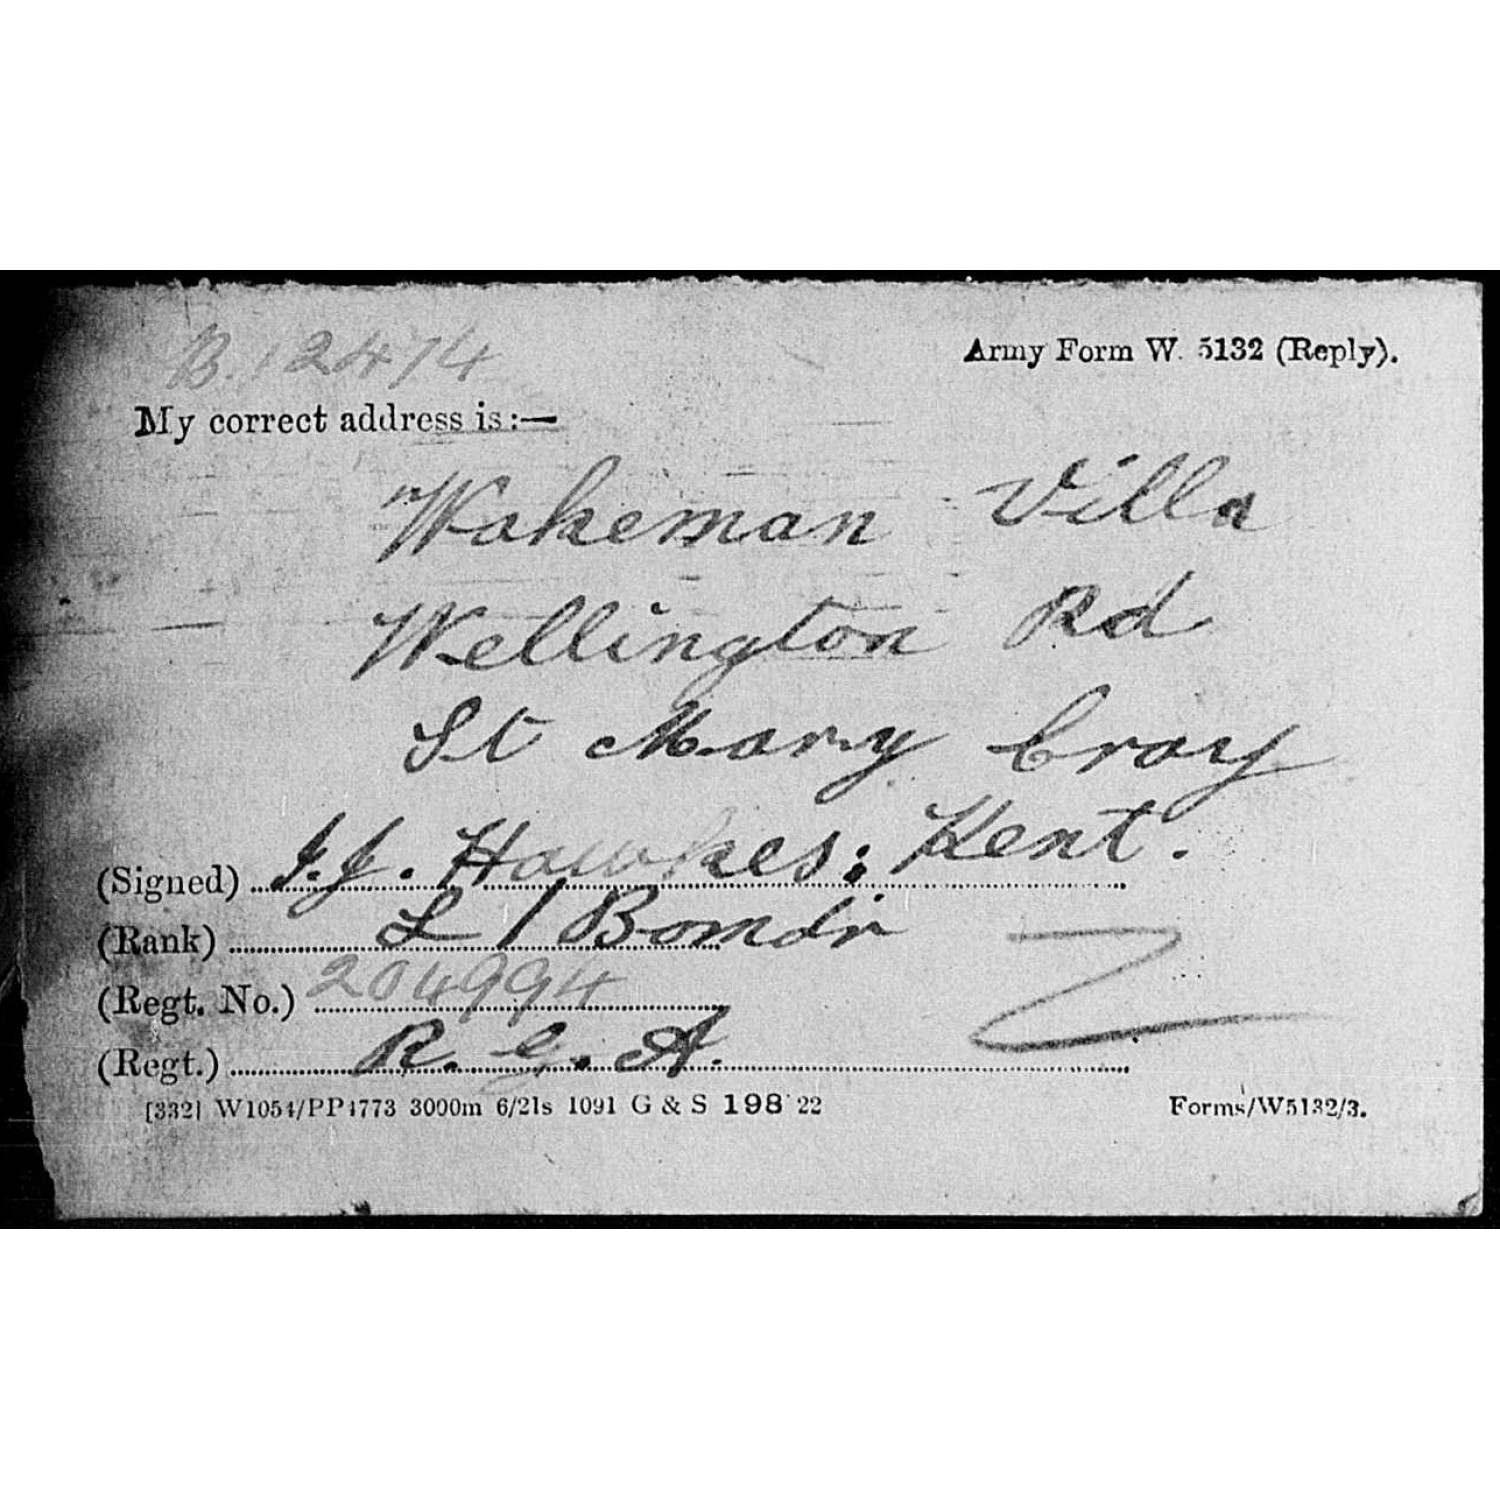 B.12474
Army Form W. 5132 (Reply).
My correct address is :—
Wakeman Villa
Wellington Rd
St Mary Cray
Kent.
(Signed) J.J. Hawkes:
(Rank) L/Bomdr
(Regt. No.) 204994
(Regt.) R.G.A.
[332] W1054/PP4773 3000m 6/21s 1091 G & S 198 22
Forms/W5132/3.